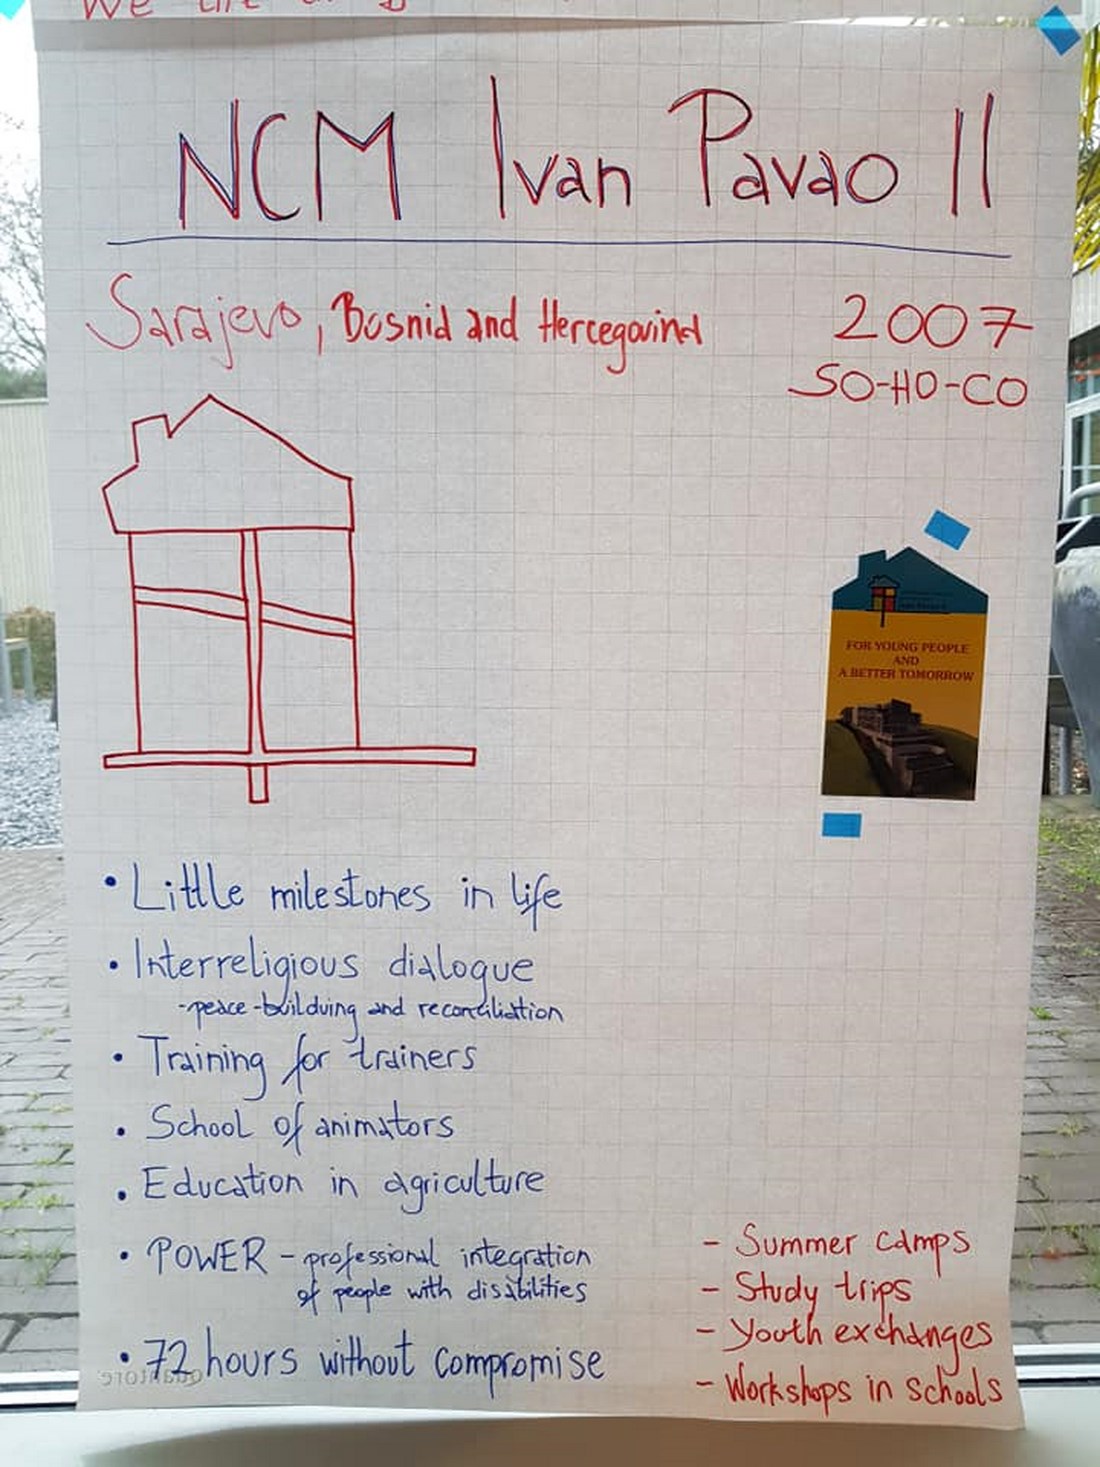 We
NCM Ivan Pavao II
Sarajevo, Bosnia and Hercegovina
2007
SO-HO-CO
FOR YOUNG PEOPLE
AND
A BETTER TOMORROW
• Little milestones in life
• Interreligious dialogue
-peace-builduing and reconciliation
• Training for trainers
• School of animators
• Education in agriculture
• POWER - professional integration
of people with disabilities
• 72 hours without compromise
- Summer camps
- Study trips
- Youth exchanges
- Workshops in schools
quantore